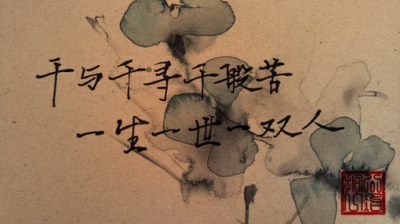 千与千寻千般苦
一生一世一双人